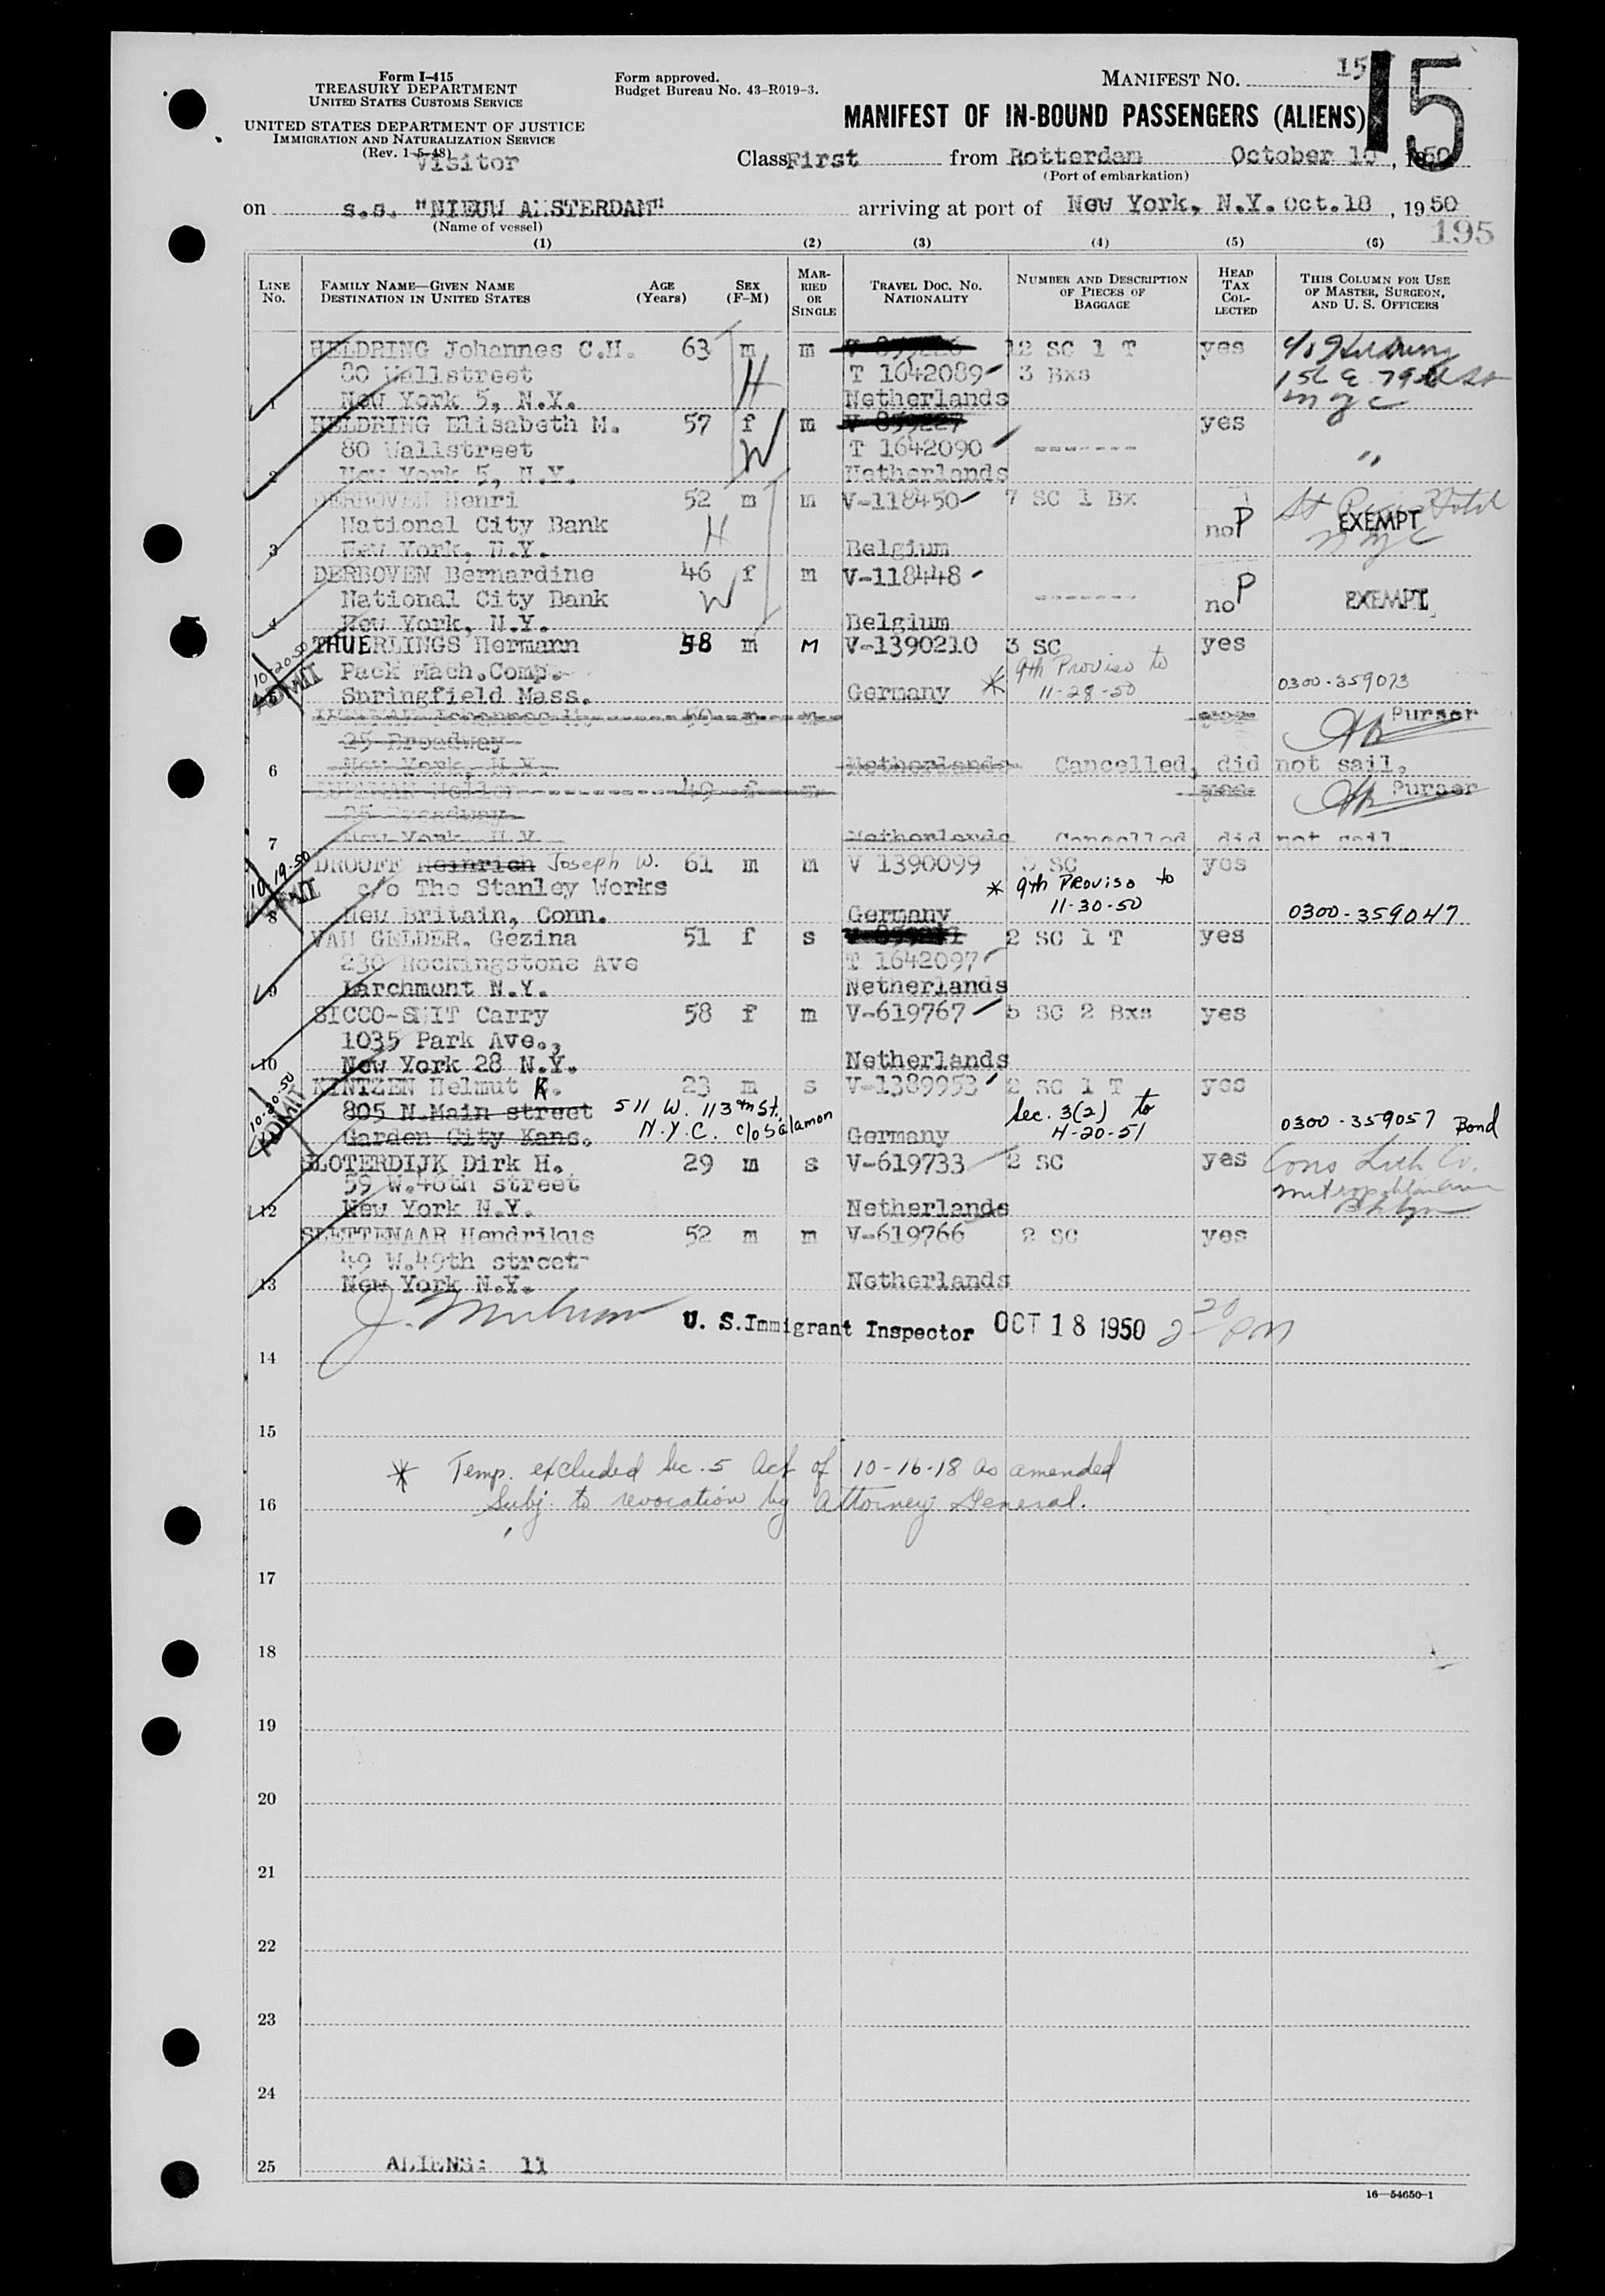 Form I-415
TREASURY DEPARTMENT
UNITED STATES CUSTOMS SERVICE
UNITED STATES DEPARTMENT OF JUSTICE
IMMIGRATION AND NATURALIZATION SERVICE
(Rev. 1-5-48)
Visitor
Form approved.
Budget Bureau No. 43-R019-3.
MANIFEST NO. 15
15
MANIFEST OF IN-BOUND PASSENGERS (ALIENS)
Class First from Rotterdam October 10, 1950
(Port of embarkation)
on s.s. "NIEUW AMSTERDAM" arriving at port of New York, N.Y. Oct.18, 1950
(Name of vessel)
195
(1) (2) (3) (4) (5) (6)
LINE NO. FAMILY NAME—GIVEN NAME DESTINATION IN UNITED STATES AGE (Years) SEX (F-M) MARRIED OR SINGLE TRAVEL DOC. NO. NATIONALITY NUMBER AND DESCRIPTION OF PIECES OF BAGGAGE HEAD TAX COLLECTED THIS COLUMN FOR USE OF MASTER, SURGEON, AND U. S. OFFICERS
HELDRING Johannes C.H. 63 m m 12 SC 1 T yes c/o Heldring
80 Wallstreet H T 1642089 3 Bxs 156 E. 79th St
1 New York 5, N.Y. Netherlands nyc
HELDRING Elisabeth M. 57 f m V 859227 yes
80 Wallstreet W T 1642090 -------
2 New York 5, N.Y. Netherlands "
DERBOVEN Henri 52 m m V-118450 7 SC 1 Bx St Hotel
National City Bank H no P EXEMPT
3 New York, N.Y. Belgium nyc
DERBOVEN Bernardine 46 f m V-118448
National City Bank W ------- no P EXEMPT
4 New York, N.Y. Belgium
THUERLINGS Hermann 58 m M V-1390210 3 SC yes
10-20-50 Pack Mach.Comp. * 9th Proviso to
ADMIT 5 Springfield Mass. Germany 11-28-50 0300-359073
Johannes 50 m m yes Purser
25 Broadway
6 New York, N.Y. Netherlands Cancelled, did not sail.
49 f m yes Purser
25 Broadway
7 New York, N.Y. Netherlands Cancelled, did not sail.
10-19-50 DROOFF Heinrich Joseph W. 61 m m V 1390099 3 SC yes
ADMIT c/o The Stanley Works * 9th Proviso to
8 New Britain, Conn. Germany 11-30-50 0300-359047
VAN GELDER. Gezina 51 f s 2 SC 1 T yes
230 Rockingstone Ave T 1642097
9 Larchmont N.Y. Netherlands
SICCO-SMIT Carry 58 f m V-619767 5 SC 2 Bxs yes
1035 Park Ave.,
10 New York 28 N.Y. Netherlands
10-20-50 KINTZEN Helmut K. 23 m s V-1389953 2 SC 1 T yes
ADMIT 805 N.Main street 511 W. 113th St. Sec. 3(2) to
Garden City Kans. N.Y.C. c/o Salamon Germany 4-20-51 0300-359057 Bond
SLOTERDIJK Dirk H. 29 m s V-619733 2 SC yes Cons Lith Co.
59 W.46th street
12 New York N.Y. Netherlands Bklyn
SLETTENAAR Hendrikus 52 m m V-619766 2 SC yes
49 W.49th street
13 New York N.Y. Netherlands
U. S. Immigrant Inspector OCT 18 1950 2 20 PM
14
15
* Temp. excluded Sec. 5 Act of 10-16-18 as amended
16 Subj. to revocation by Attorney General.
17
18
19
20
21
22
23
24
25 ALIENS: 11
16—54650-1